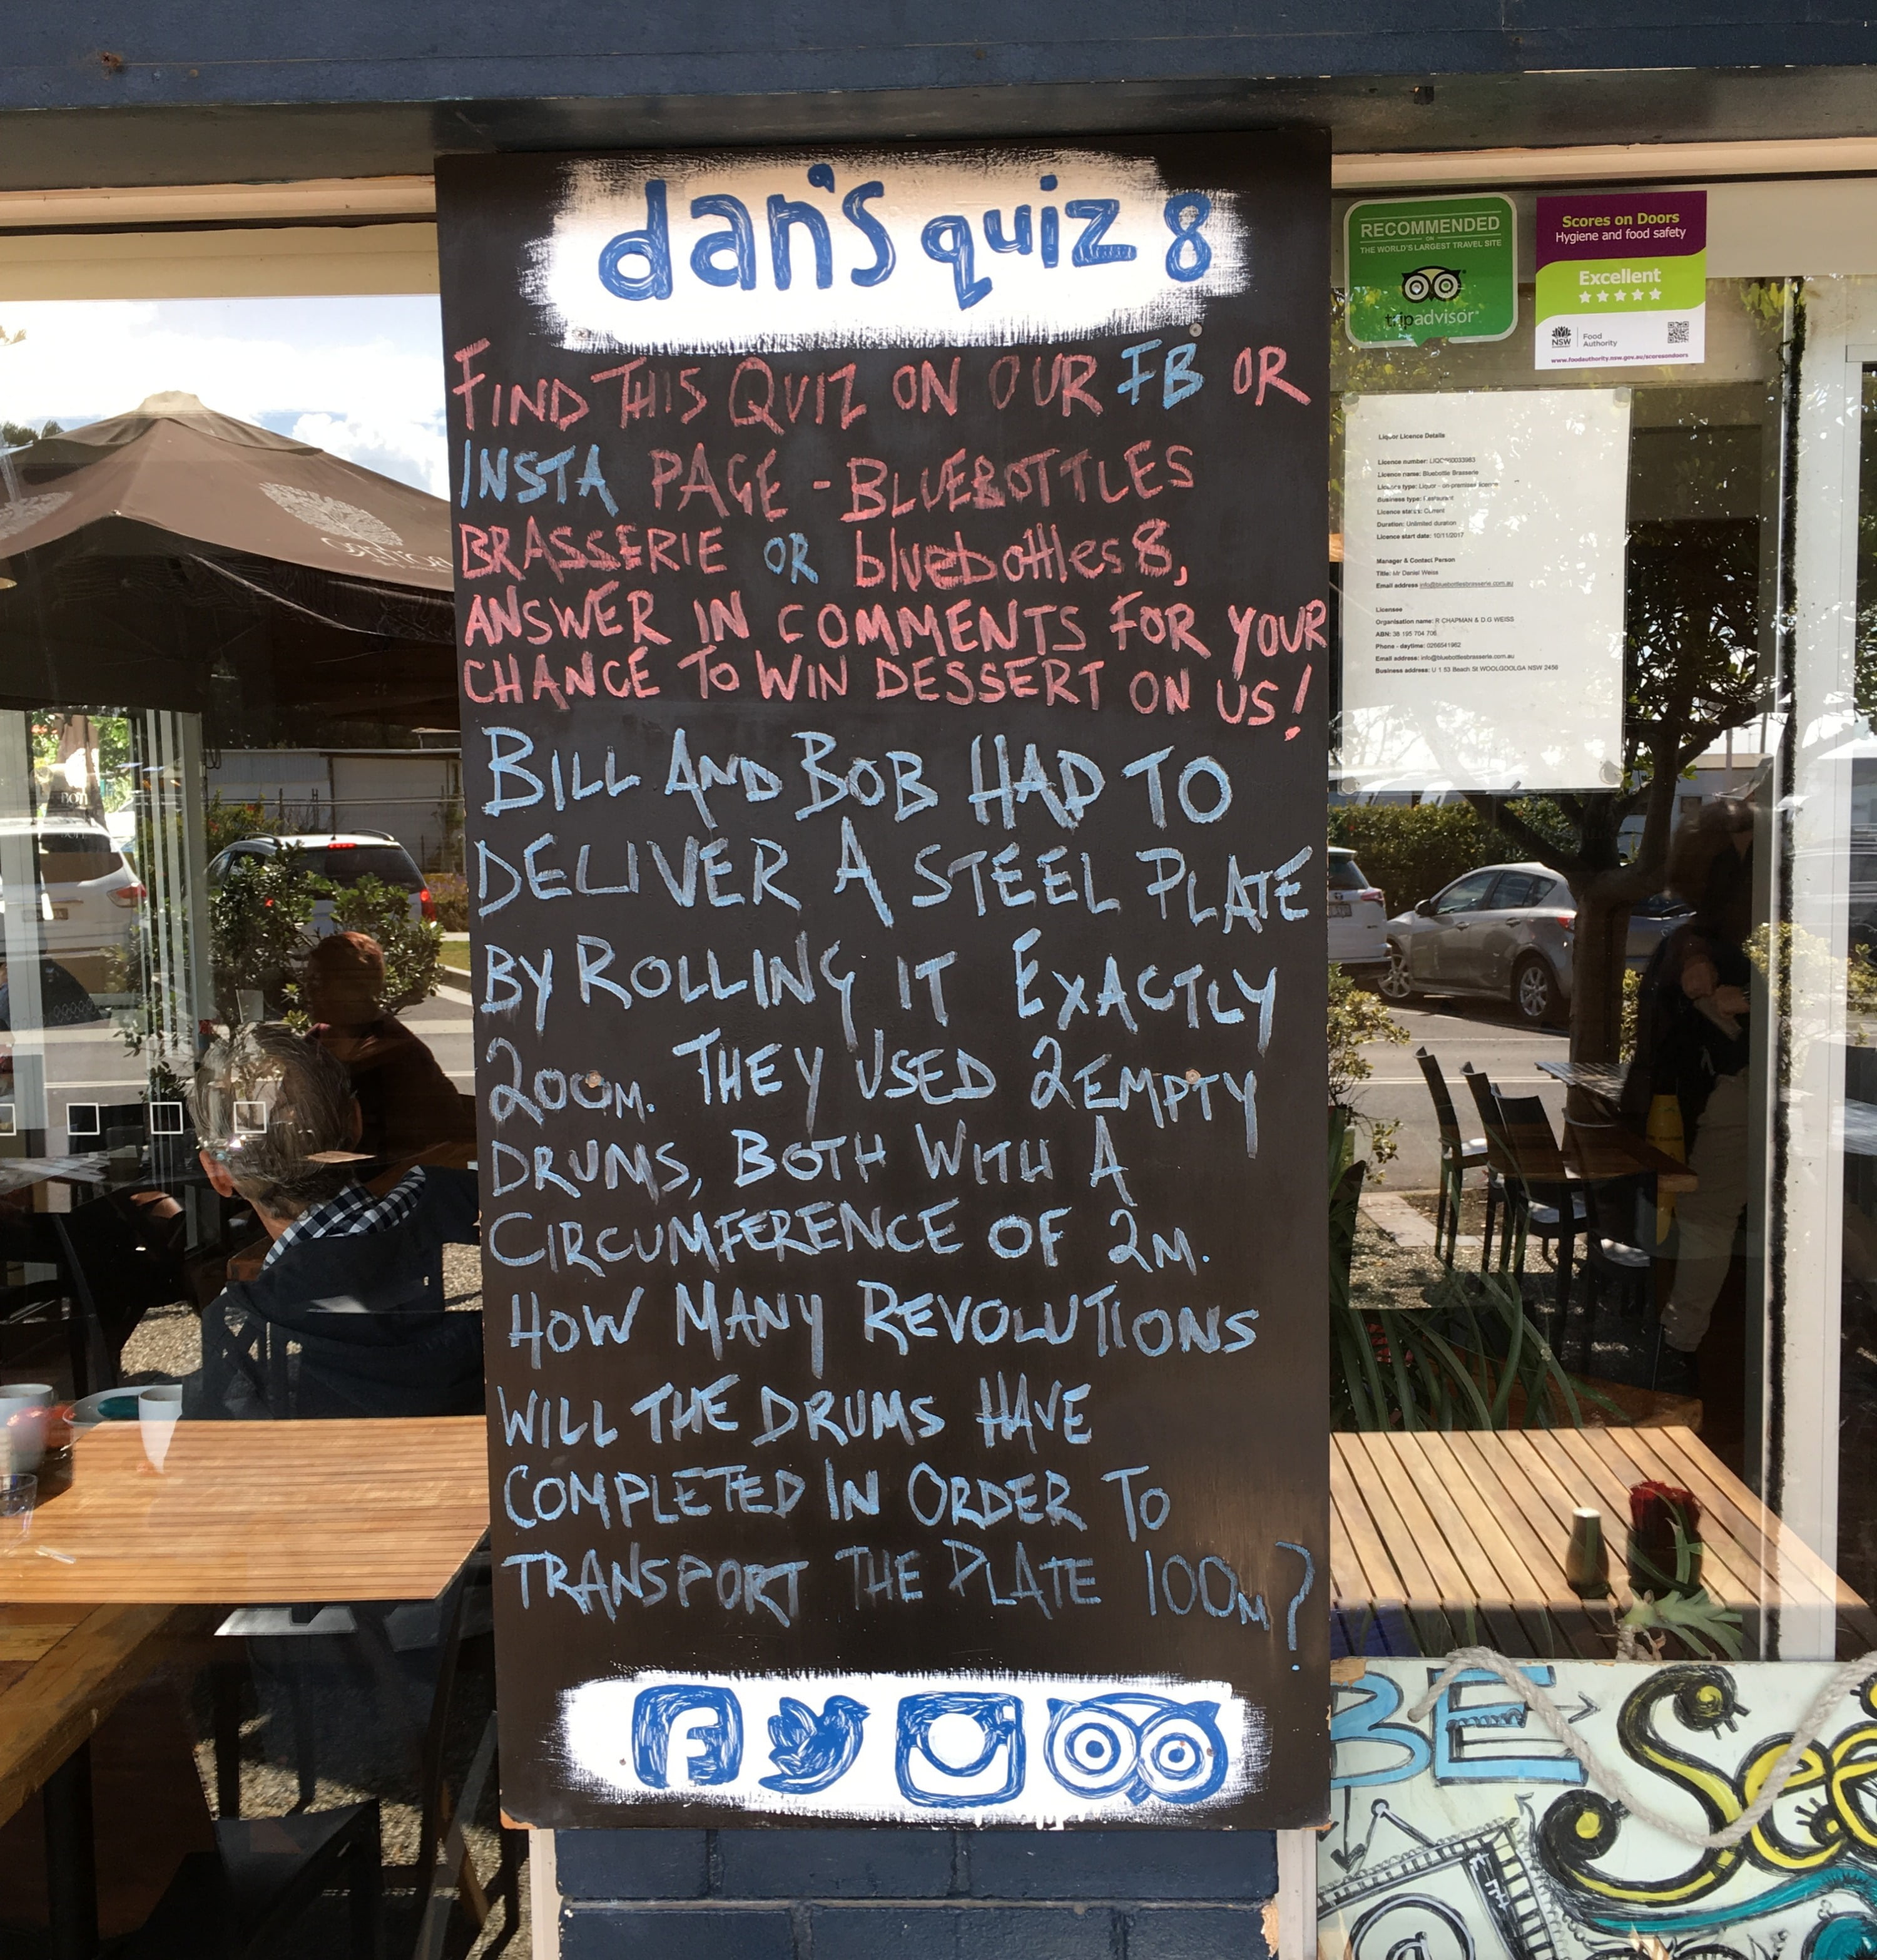 dan's quiz 8
FIND THIS QUIZ ON OUR FB OR
INSTA PAGE - BLUEBOTTLES
BRASSERIE OR bluebottles8,
ANSWER IN COMMENTS FOR YOUR
CHANCE TO WIN DESSERT ON US!
BILL AND BOB HAD TO
DELIVER A STEEL PLATE
BY ROLLING IT EXACTLY
200M. THEY USED 2 EMPTY
DRUMS, BOTH WITH A
CIRCUMFERENCE OF 2M.
HOW MANY REVOLUTIONS
WILL THE DRUMS HAVE
COMPLETED IN ORDER TO
TRANSPORT THE PLATE 100M?
RECOMMENDED
ON
THE WORLD'S LARGEST TRAVEL SITE
tripadvisor
Scores on Doors
Hygiene and food safety
Excellent
NSW
Food
Authority
www.foodauthority.nsw.gov.au/scoresondoors
Liquor Licence Details
Licence number:
Licence name: Bluebottle Brasserie
Licence type: Liquor - on-premises licence
Business type: Restaurant
Licence status: Current
Duration: Unlimited duration
Licence start date: 10/11/2017
Manager & Contact Person
Title: Mr Daniel Weiss
Email address info@bluebottlesbrasserie.com.au
Licensee
Organisation name: R CHAPMAN & D.G WEISS
ABN: 38 195 704 706
Phone - daytime: 0266541962
Email address: info@bluebottlesbrasserie.com.au
Business address: U 1 53 Beach St WOOLGOOLGA NSW 2456
BE
See